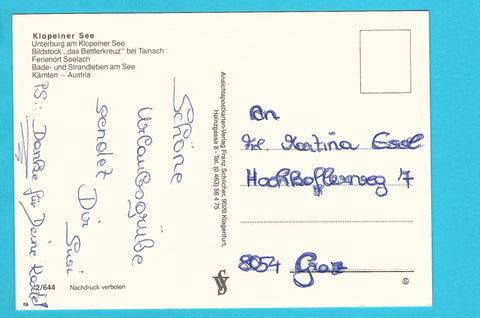 Klopeiner See
Unterburg am Klopeiner See
Bildstock „das Bettlerkreuz" bei Tainach
Ferienort Seelach
Bade- und Strandleben am See
Kärnten – Austria
Schöne
Urlaubsgrüße
sendet Dir
Susi
PS.: Danke für Deine Karte!
2/644
Nachdruck verboten
Ansichtspostkarten-Verlag Franz Schilcher, 9020 Klagenfurt,
Heinzgasse 6 - Tel. (0 463) 56 4 75
An
Frl. Martina Essl
Hochkoflerweg 7
8054 Graz
S